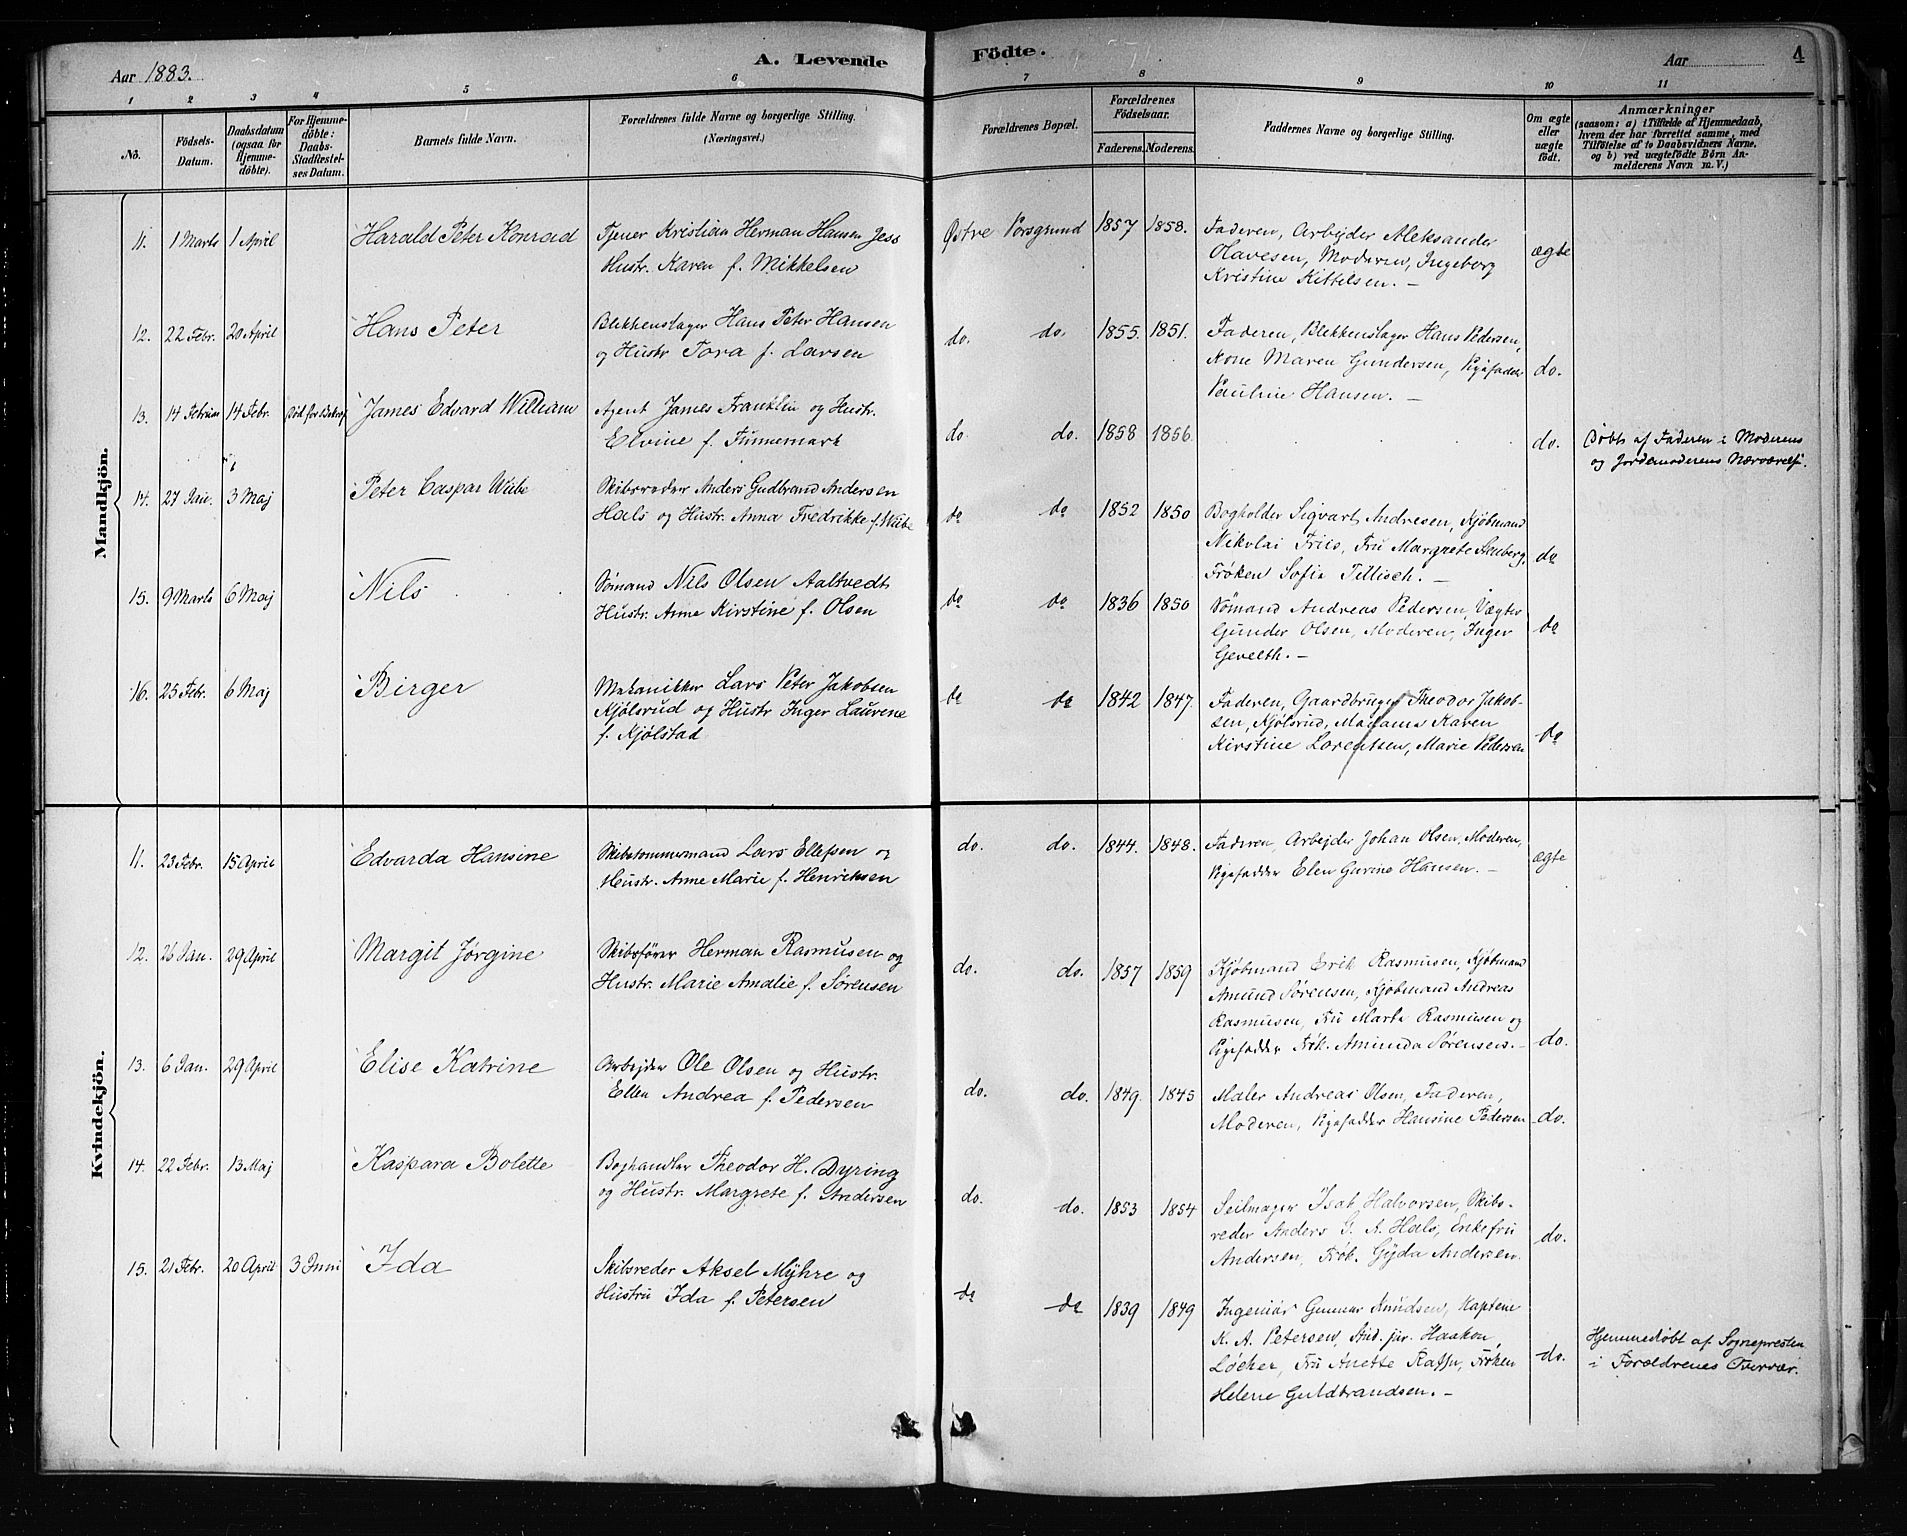 Aar 1883.
A. Levende
Födte.
Aar
4
1 2 3 4 5 6 7 8 9 10 11
No.
Födsels-
Datum.
Daabsdatum
(ogsaa for
Hjemme-
döbte).
For Hjemme-
döbte:
Daabs-
Stadfæstel-
ses Datum.
Barnets fulde Navn.
Forældrenes fulde Navne og borgerlige Stilling.
(Næringsvei.)
Forældrenes Bopæl.
Forældrenes
Födselsaar.
Faderens. Moderens.
Faddernes Navne og borgerlige Stilling.
Om ægte
eller
uægte
födt.
Anmærkninger
(saasom: a) i Tilfælde af Hjemmedaab,
hvem der har forrettet samme, med
Tilföielse af to Daabsvidners Navne,
og b) ved uægtefödte Börn An-
melderens Navn m. V.)
Mandkjön.
11. 1 Marts 1 April Harald Peter Konrad Tjener Kristian Herman Hansen Jess
Hustr. Karen f. Mikkelsen
Østre Porsgrund 1857 1858. Faderen, Arbejder Aleksander
Olavesen, Moderen, Ingeborg
Kristine Kittelsen. —
ægte
12. 22 Febr. 20 April Hans Peter Blikkenslager Hans Peter Hansen
og Hustr Tora f. Larsen
do. do. 1855. 1851. Faderen, Blekkenslager Hans Pedersen,
Kone Maren Gundersen, Pigefadder
Pauline Hansen. —
do.
13. 14 Februar 14 Febr. James Edvard William Agent James Franklin og Hustr.
Elvine f. Finnemark
do. do. 1858 1856. do. Døbt af Faderen i Moderens
og Jordemoderens Nærværelse.
14. 27 Jan. 3 Maj Peter Caspar Wiibe Skibsreder Anders Gudbrand Andersen
Hals og Hustr. Anna Fredrikke f. Wiibe
do do 1852 1850 Bogholder Sigvart Andresen, Kjøbmand
Nikolai Friis, Fru Margrete Stenberg,
Frøken Sofie Tillisch. —
do
15. 9 Marts 6 Maj Nils Sømand Nils Olsen Aaltvedt
Hustr. Anne Kirstine f. Olsen
do do 1836 1850 Sømand Andreas Pedersen, Vægter
Gunder Olsen, Moderen, Inger
Gevelth. —
do
16. 25 Febr. 6 Maj Birger Mekanikker Lars Peter Jakobsen
Kjølsrud og Hustr Inger Laurene
f. Kjølstad
do do 1842 1847. Faderen, Gaardbruger Theodor Jakob-
sen, Kjølsrud, Madame Karen
Kirstine Lorentsen, Marie Pedersen
do
Kvindekjön.
11. 23 Febr. 15 April Edvarda Hansine Skibstømmermand Lars Ellefsen og
Hustr. Anne Marie f. Henriksen
do. do. 1844. 1848. Faderen, Arbejder Johan Olsen, Moderen,
Pigefadder Elen Gurine Hansen. —
ægte
12. 26 Jan. 29 April Margit Jørgine Skibsfører Herman Rasmusen og
Hustr. Marie Amalie f. Sørensen
do. do. 1857 1859 Kjøbmand Erik Rasmusen, Kjøbmand
Amund Sørensen, Kjøbmand Andreas
Rasmusen, Fru Marta Rasmusen og
Pigefadder Frøk. Aminda Sørensen. —
do.
13. 6 Jan. 29 April Elise Katrine Arbejder Ole Olsen og Hustr.
Ellen Andrea f. Pedersen
do. do. 1849. 1845 Maler Andreas Olsen, Faderen,
Moderen, Pigefadder Hansine Pedersen
do.
14. 22 Febr. 13 Maj Kaspara Bolette Boghandler Theodor H. Dyring
og Hustr. Margrete f. Andersen
do. do. 1853 1854 Seilmager Isak Halvorsen, Skibs-
reder Anders G. A. Hals, Enkefru
Andersen, Frøk. Gyda Andersen.
do.
15. 21 Febr. 20 April 3 Juni Ida Skibsreder Aksel Myhre og
Hustru Ida f. Petersen
do do 1839 1849 Ingeniør Gunnar Knudsen, Kaptein
K. A. Petersen, Stud. jur. Haakon
Løcker, Fru Anette Rafn, Frøken
Helene Guldbrandsen. —
do. Hjemmedøbt af Sognepresten
i Forældrenes Overvær.